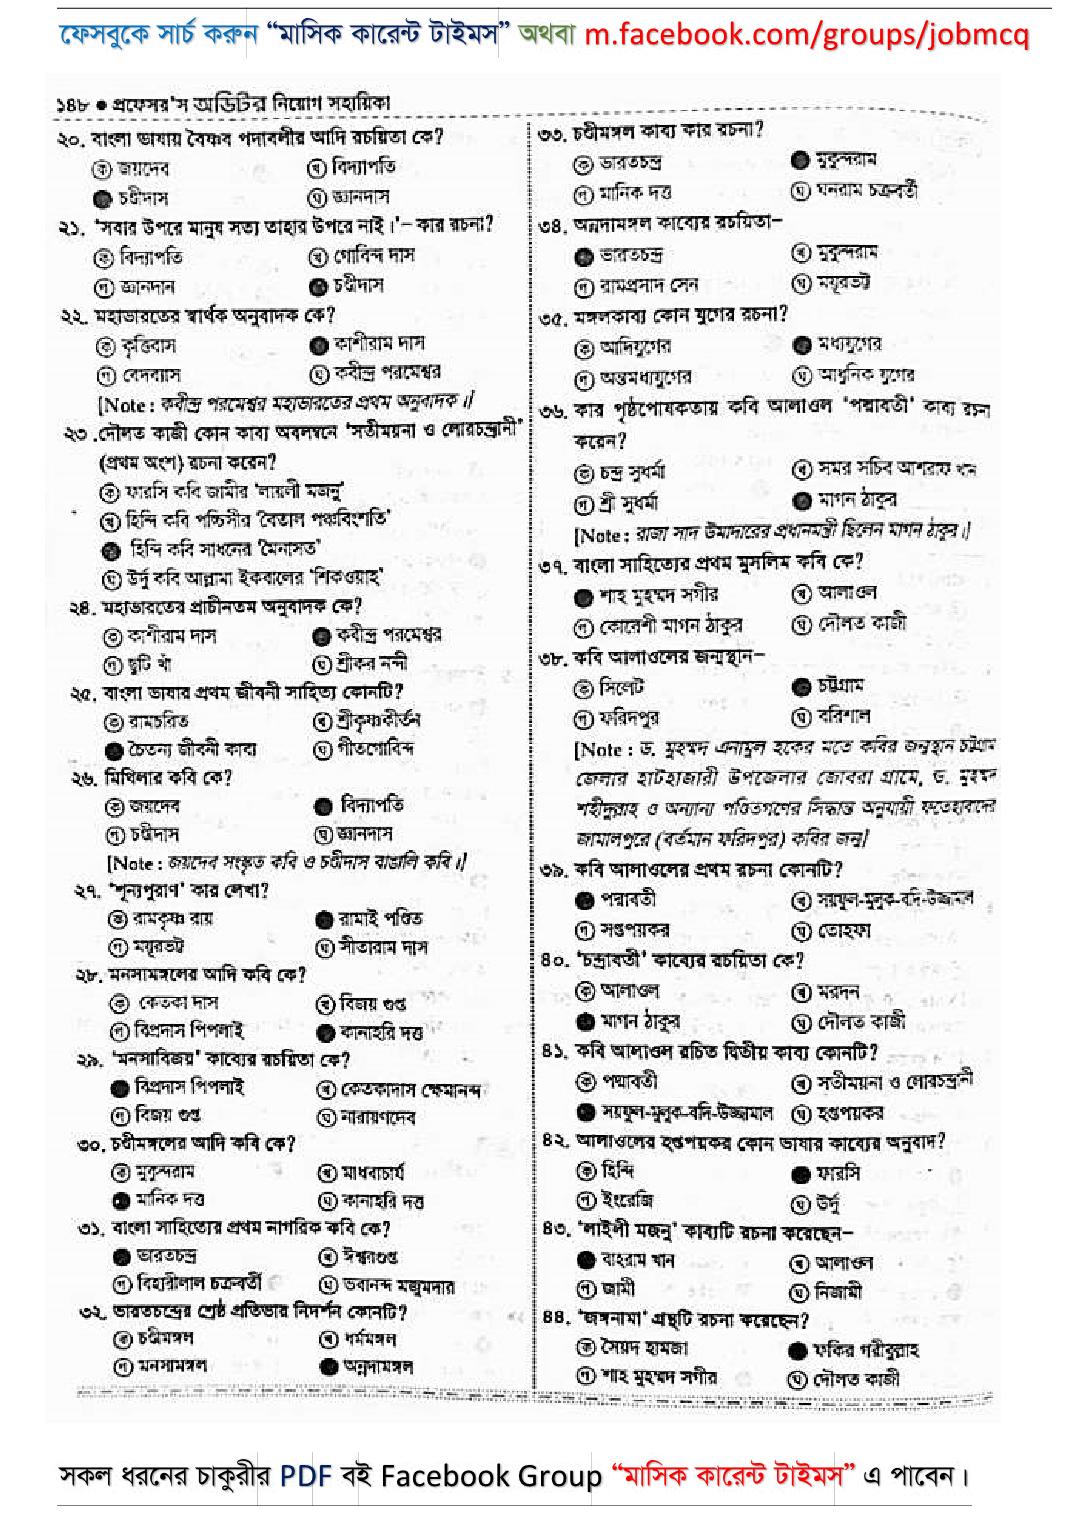 ফেসবুকে সার্চ করুন “মাসিক কারেন্ট টাইমস” অথবা m.facebook.com/groups/jobmcq
১৪৮ ● প্রফেসর'স অডিটর নিয়োগ সহায়িকা
২০. বাংলা ভাষায় বৈষ্ণব পদাবলীর আদি রচয়িতা কে?
ক জয়দেব খ বিদ্যাপতি
● চণ্ডীদাস ঘ জ্ঞানদাস
২১. 'সবার উপরে মানুষ সত্য তাহার উপরে নাই।'– কার রচনা?
ক বিদ্যাপতি খ গোবিন্দ দাস
গ জ্ঞানদান ● চণ্ডীদাস
২২. মহাভারতের স্বার্থক অনুবাদক কে?
ক কৃত্তিবাস ● কাশীরাম দাস
গ বেদব্যাস ঘ কবীন্দ্র পরমেশ্বর
[Note : কবীন্দ্র পরমেশ্বর মহাভারতের প্রথম অনুবাদক।]
২৩.দৌলত কাজী কোন কাব্য অবলম্বনে 'সতীময়না ও লোরচন্দ্রানী'
(প্রথম অংশ) রচনা করেন?
ক ফারসি কবি জামীর 'লায়লী মজনু'
খ হিন্দি কবি পচ্চিসীর 'বেতাল পঞ্চবিংশতি'
● হিন্দি কবি সাধনের 'মৈনাসত'
ঘ উর্দু কবি আল্লামা ইকবালের 'শিকওয়াহ'
২৪. মহাভারতের প্রাচীনতম অনুবাদক কে?
ক কাশীরাম দাস ● কবীন্দ্র পরমেশ্বর
গ ছুটি খাঁ ঘ শ্রীকর নন্দী
২৫. বাংলা ভাষার প্রথম জীবনী সাহিত্য কোনটি?
ক রামচরিত খ শ্রীকৃষ্ণকীর্তন
● চৈতন্য জীবনী কাব্য ঘ গীতগোবিন্দ
২৬. মিথিলার কবি কে?
ক জয়দেব ● বিদ্যাপতি
গ চণ্ডীদাস ঘ জ্ঞানদাস
[Note : জয়দেব সংস্কৃত কবি ও চণ্ডীদাস বাঙালি কবি।]
২৭. 'শূন্যপুরাণ' কার লেখা?
ক রামকৃষ্ণ রায় ● রামাই পণ্ডিত
গ ময়ূরভট্ট ঘ সীতারাম দাস
২৮. মনসামঙ্গলের আদি কবি কে?
ক কেতকা দাস খ বিজয় গুপ্ত
গ বিপ্রদাস পিপলাই ● কানাহরি দত্ত
২৯. 'মনসাবিজয়' কাব্যের রচয়িতা কে?
● বিপ্রদাস পিপলাই খ কেতকাদাস ক্ষেমানন্দ
গ বিজয় গুপ্ত ঘ নারায়ণদেব
৩০. চণ্ডীমঙ্গলের আদি কবি কে?
ক মুকুন্দরাম খ মাধবাচার্য
● মানিক দত্ত ঘ কানাহরি দত্ত
৩১. বাংলা সাহিত্যের প্রথম নাগরিক কবি কে?
● ভারতচন্দ্র খ ঈশ্বরগুপ্ত
গ বিহারীলাল চক্রবর্তী ঘ ভবানন্দ মজুমদার
৩২. ভারতচন্দ্রের শ্রেষ্ঠ প্রতিভার নিদর্শন কোনটি?
ক চণ্ডীমঙ্গল খ ধর্মমঙ্গল
গ মনসামঙ্গল ● অন্নদামঙ্গল
৩৩. চণ্ডীমঙ্গল কাব্য কার রচনা?
ক ভারতচন্দ্র ● মুকুন্দরাম
গ মানিক দত্ত ঘ ঘনরাম চক্রবর্তী
৩৪. অন্নদামঙ্গল কাব্যের রচয়িতা–
● ভারতচন্দ্র খ মুকুন্দরাম
গ রামপ্রসাদ সেন ঘ ময়ূরভট্ট
৩৫. মঙ্গলকাব্য কোন যুগের রচনা?
ক আদিযুগের ● মধ্যযুগের
গ অন্তমধ্যযুগের ঘ আধুনিক যুগের
৩৬. কার পৃষ্ঠপোষকতায় কবি আলাওল 'পদ্মাবতী' কাব্য রচনা
করেন?
ক চন্দ্র সুধর্মা খ সমর সচিব আশরাফ খান
গ শ্রী সুধর্মা ● মাগন ঠাকুর
[Note : রাজা সাদ উমাদারের প্রধানমন্ত্রী ছিলেন মাগন ঠাকুর।]
৩৭. বাংলা সাহিত্যের প্রথম মুসলিম কবি কে?
● শাহ মুহম্মদ সগীর খ আলাওল
গ কোরেশী মাগন ঠাকুর ঘ দৌলত কাজী
৩৮. কবি আলাওলের জন্মস্থান–
ক সিলেট ● চট্টগ্রাম
গ ফরিদপুর ঘ বরিশাল
[Note : ড. মুহম্মদ এনামুল হকের মতে কবির জন্মস্থান চট্টগ্রাম
জেলার হাটহাজারী উপজেলার জোবরা গ্রামে, ড. মুহম্মদ
শহীদুল্লাহ ও অন্যান্য পণ্ডিতগণের সিদ্ধান্ত অনুযায়ী ফতেহাবাদের
জামালপুরে (বর্তমান ফরিদপুর) কবির জন্ম]
৩৯. কবি আলাওলের প্রথম রচনা কোনটি?
● পদ্মাবতী খ সয়ফুল-মুলুক-বদি-উজ্জামাল
গ সপ্তপয়কর ঘ তোহফা
৪০. 'চন্দ্রাবতী' কাব্যের রচয়িতা কে?
ক আলাওল খ মরদন
● মাগন ঠাকুর ঘ দৌলত কাজী
৪১. কবি আলাওল রচিত দ্বিতীয় কাব্য কোনটি?
ক পদ্মাবতী খ সতীময়না ও লোরচন্দ্রানী
● সয়ফুল-মুলুক-বদি-উজ্জামাল ঘ হপ্তপয়কর
৪২. আলাওলের হপ্তপয়কর কোন ভাষার কাব্যের অনুবাদ?
ক হিন্দি ● ফারসি
গ ইংরেজি ঘ উর্দু
৪৩. 'লাইলী মজনু' কাব্যটি রচনা করেছেন–
● বাহরাম খান খ আলাওল
গ জামী ঘ নিজামী
৪৪. 'জঙ্গনামা' গ্রন্থটি রচনা করেছেন?
ক সৈয়দ হামজা ● ফকির গরীবুল্লাহ
গ শাহ মুহম্মদ সগীর ঘ দৌলত কাজী
সকল ধরনের চাকুরীর PDF বই Facebook Group “মাসিক কারেন্ট টাইমস” এ পাবেন।